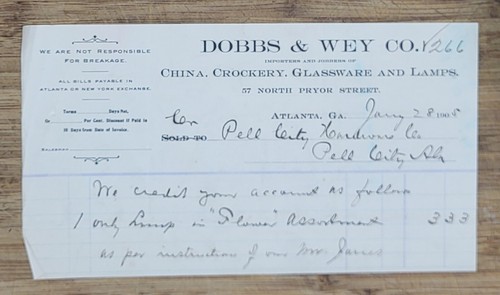 WE ARE NOT RESPONSIBLE
FOR BREAKAGE.
ALL BILLS PAYABLE IN
ATLANTA OR NEW YORK EXCHANGE.
Terms Days Net,
Or Per Cent. Discount if Paid in
10 Days from Date of Invoice.
SALESMAN
DOBBS & WEY CO. 266
IMPORTERS AND JOBBERS OF
CHINA, CROCKERY, GLASSWARE AND LAMPS.
57 NORTH PRYOR STREET.
ATLANTA, GA. Jany 28 1905
Cr
SOLD TO Pell City Hardware Co
Pell City Ala
We credit your account as follows
1 only Lamp in "Flower" assortment 3 33
as per instruction of our Mr. James